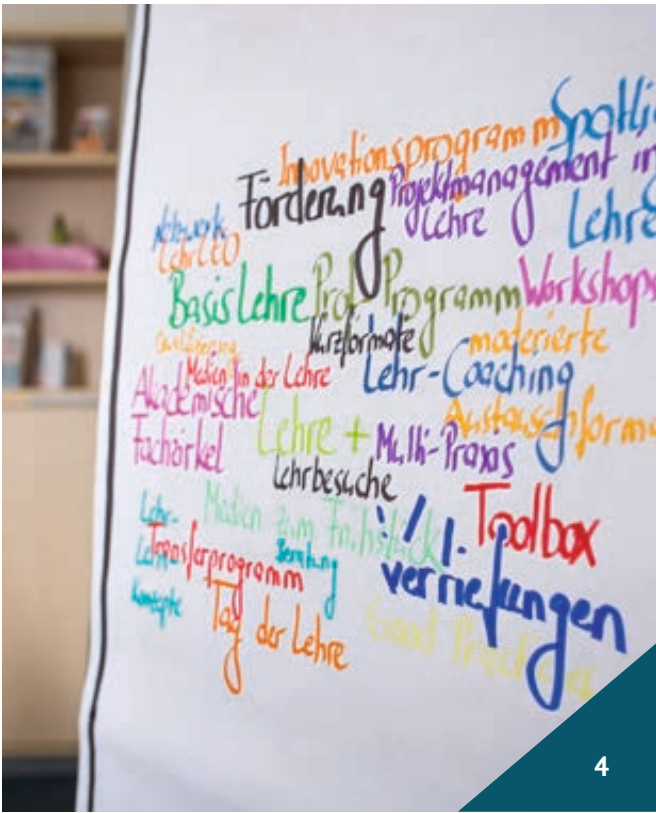 Innovationsprogramm
Spotli
Förderung
Projektmanagement in
Lehre
Lehre
Netzwerk
LehrCEO
BasisLehre
Prof Programm
Workshops
Kurzformate
moderierte
Medien in der Lehre
Lehr-Coaching
Akademische
Fachzirkel
Austauschforma
Lehre +
Multi-Praxis
Lehrbesuche
Toolbox
Medien zum Frühstück
Lehr-
Transferprogramm
Beratung
vertiefungen
Konzepte
Tag der Lehre
Good Practices
4